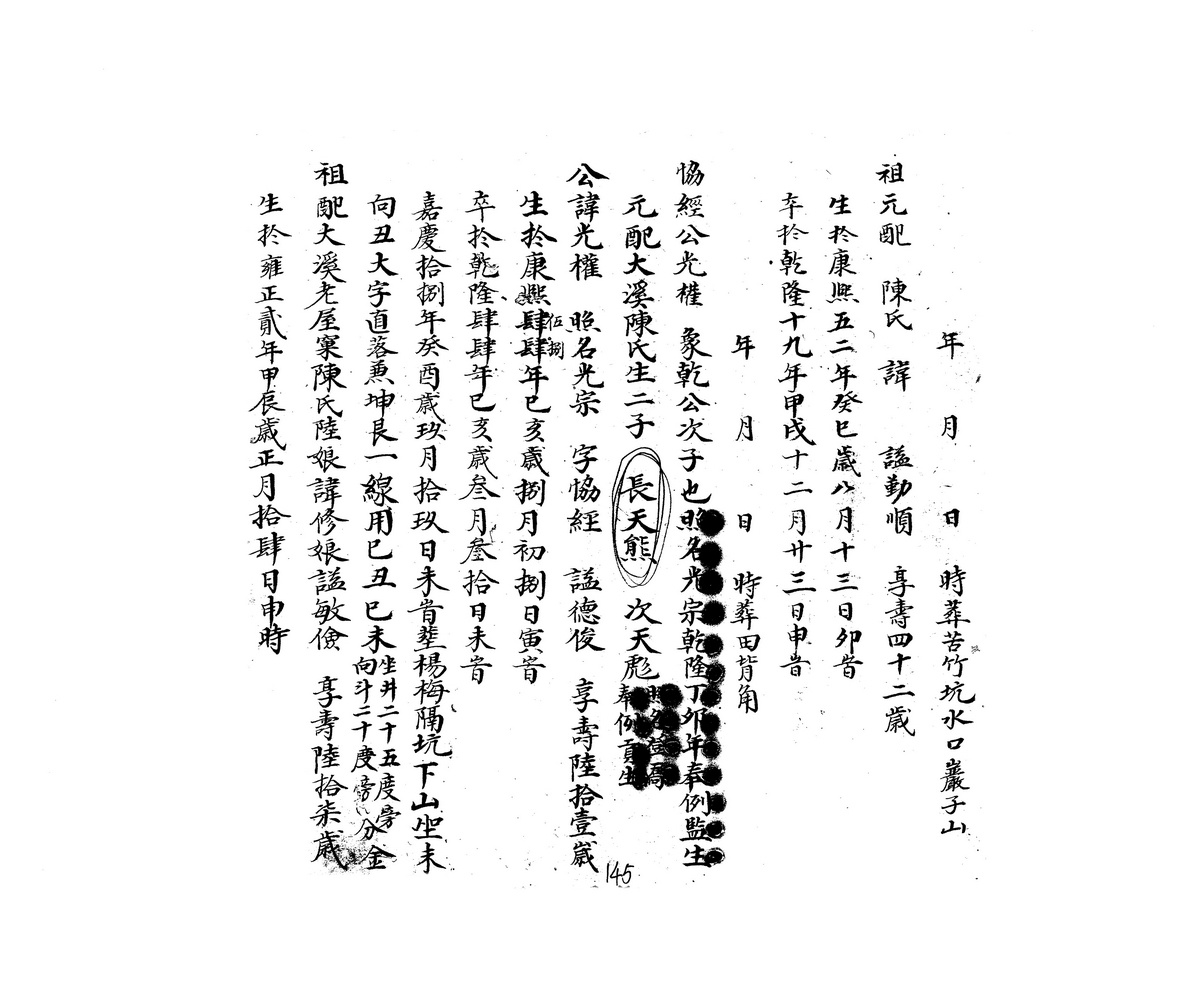 年 月 日 時葬苦竹坑水口巖子山
祖元配 陳氏 諱 謚勤順 享壽四十二歲
生於康熙五二年癸巳歲八月十三日卯旹
卒於乾隆十九年甲戌十二月廿三日申旹
年 月 日 時葬田背角
協經公光權 象乾公次子也 照名光宗乾隆丁卯年奉例監生
元配大溪陳氏生二子 長天熊 次天彪 奉例貢生
公諱光權 照名光宗 字協經 謚德俊 享壽陸拾壹歲
生於康熙肆肆年巳亥歲捌月初捌日寅旹
伍捌
卒於乾隆肆肆年巳亥歲叁月叄拾日未旹
嘉慶拾捌年癸酉歲玖月拾玖日未旹塟楊梅隔坑下山坐未
向丑大字直落兼坤艮一線用巳丑巳未坐井二十五度旁
向斗二十度旁分金
祖配大溪老屋寨陳氏陸娘諱修娘謚敏儉 享壽陸拾柒歲
生於雍正貳年甲辰歲正月拾肆日申時
145